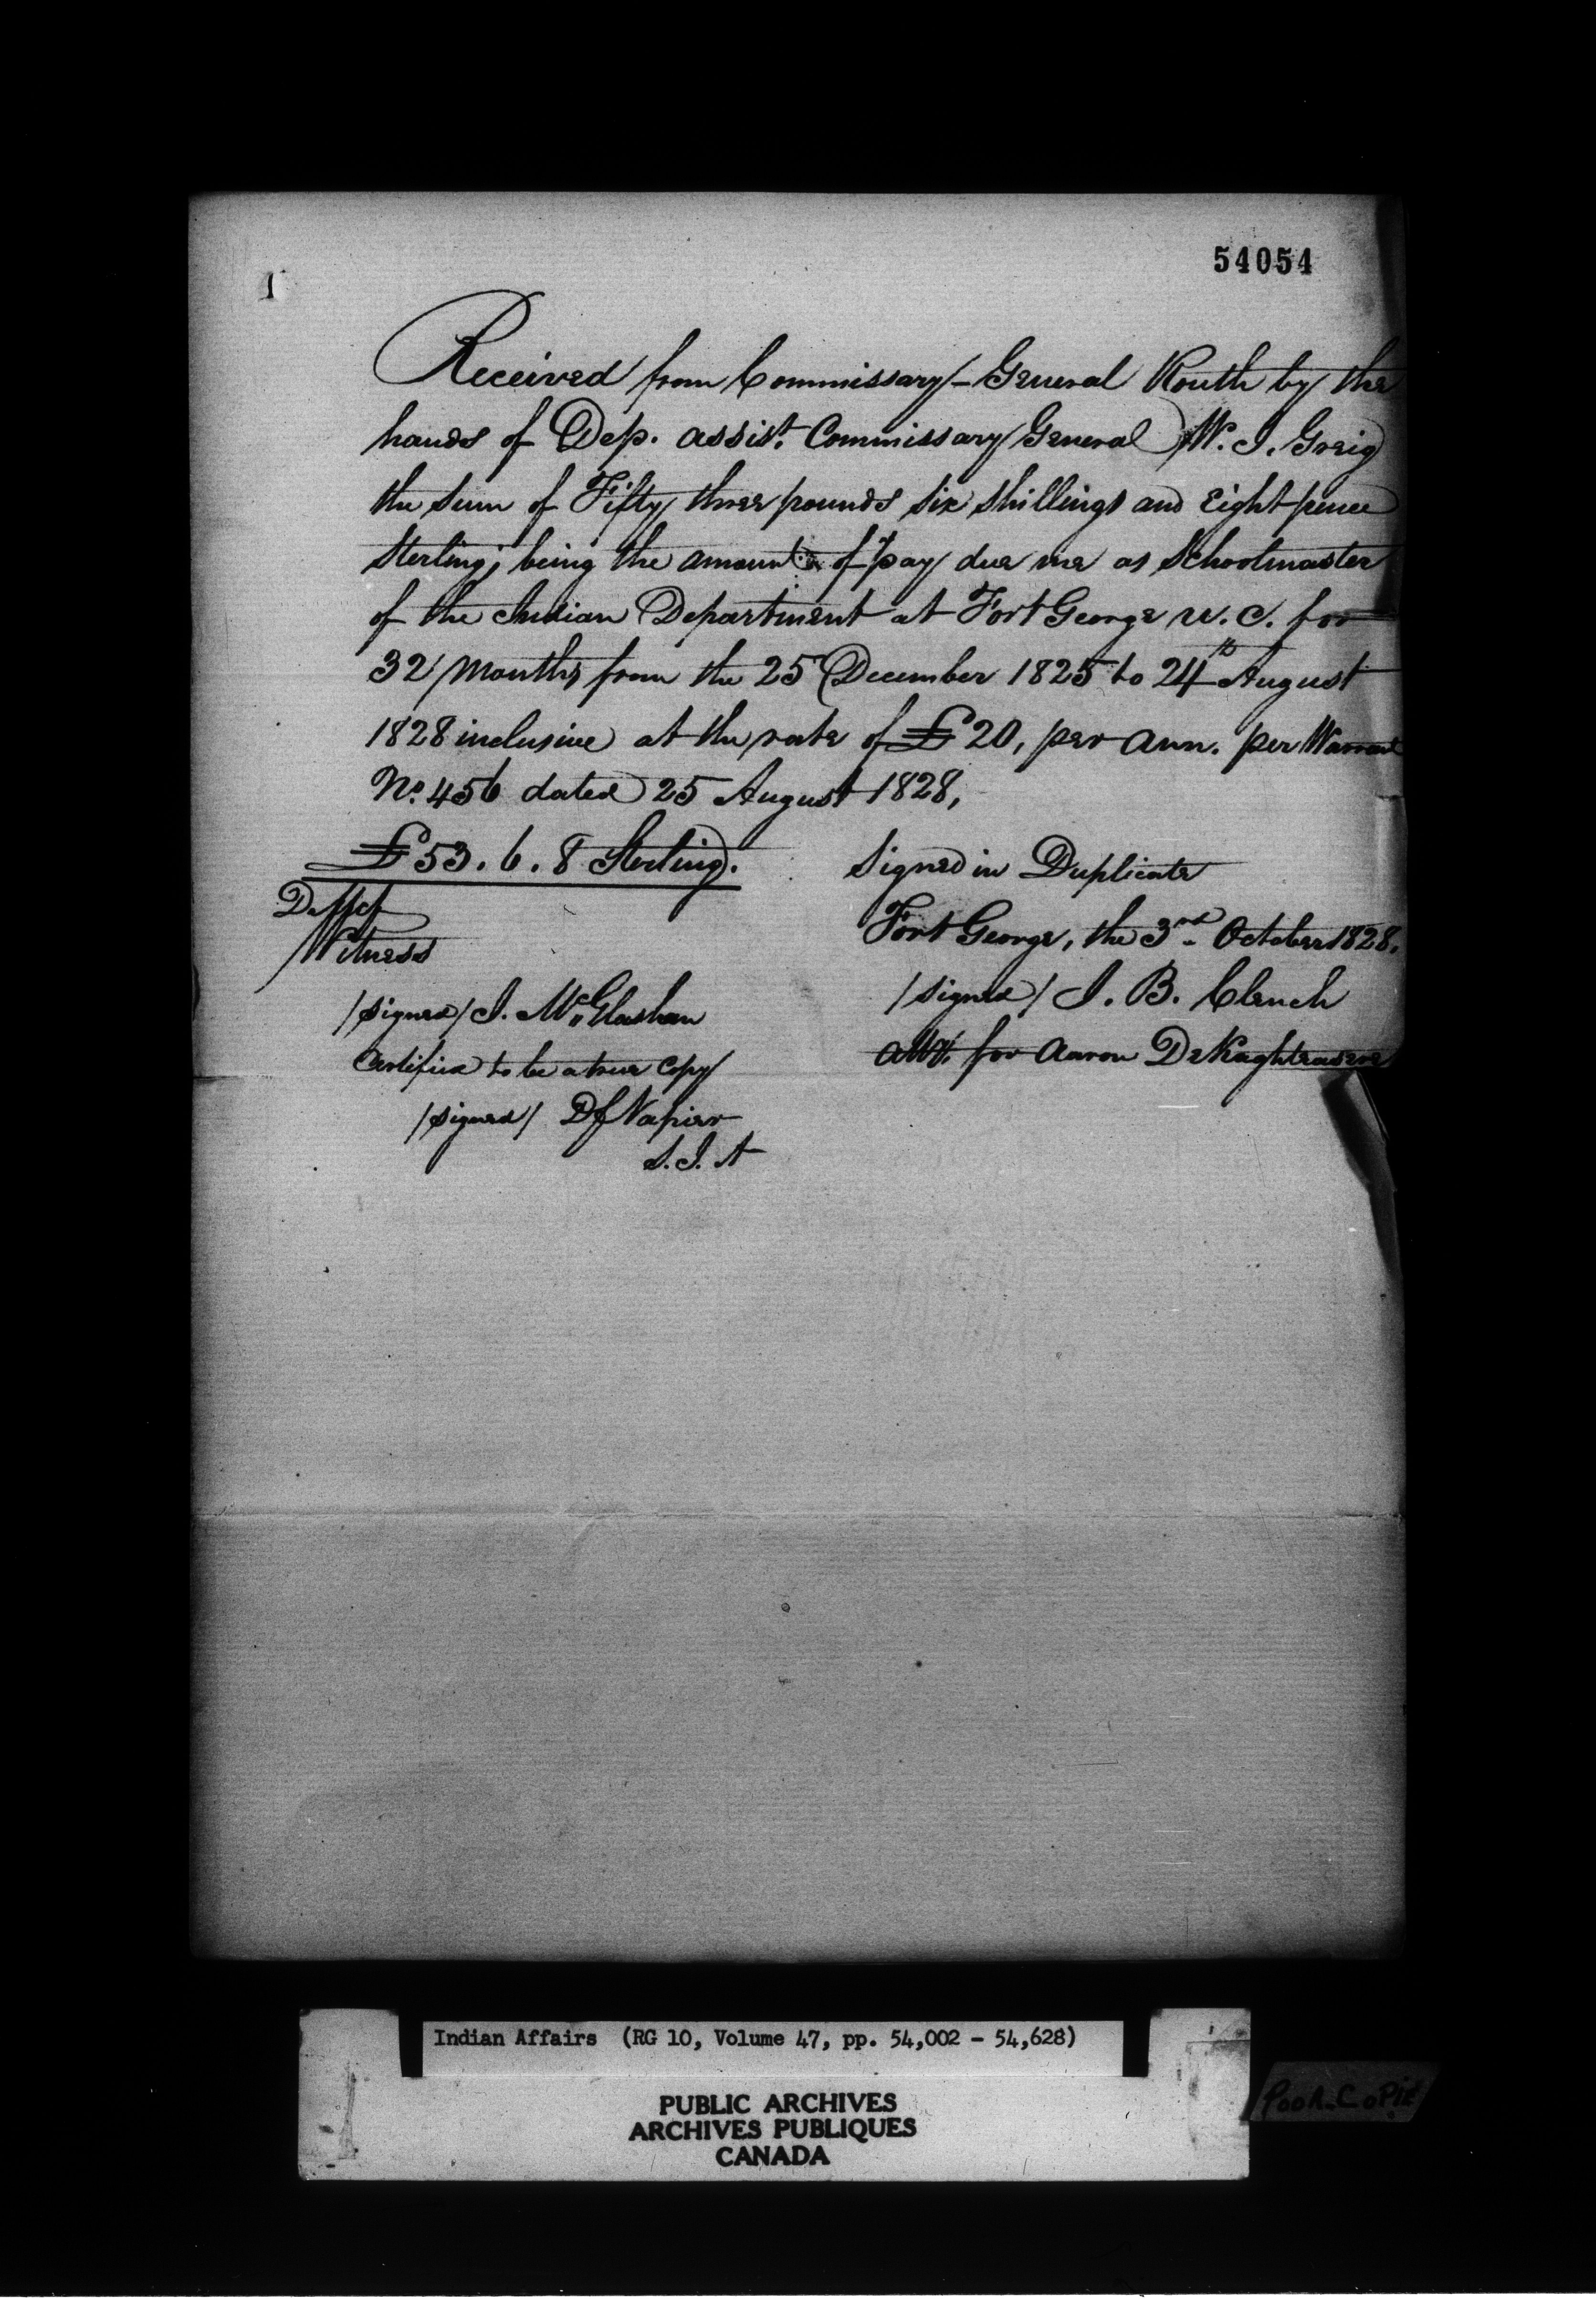 54054
1
Received from Commissary-General Routh by the
hands of Dep. assist. Commissary General W. J. Greig
the sum of Fifty three pounds six shillings and Eight pence
Sterling; being the amount of pay due me as Schoolmaster
of the Indian Department at Fort George U. C. for
32 Months from the 25 December 1825 to 24th August
1828 inclusive at the rate of £20, per ann. per Warrant
No. 456 dated 25 August 1828,
£53. 6. 8 Sterling.
Signed in Duplicate
Fort George, the 3rd October 1828.
Witness
/signed/ J. B. Clench
/signed/ J. McGlashan
atty. for Aaron DeKaghtradere
Certified to be a true Copy
/signed/ D Napier
S. I. A
Indian Affairs (RG 10, Volume 47, pp. 54,002 - 54,628)
PUBLIC ARCHIVES
ARCHIVES PUBLIQUES
CANADA
POOR COPIE